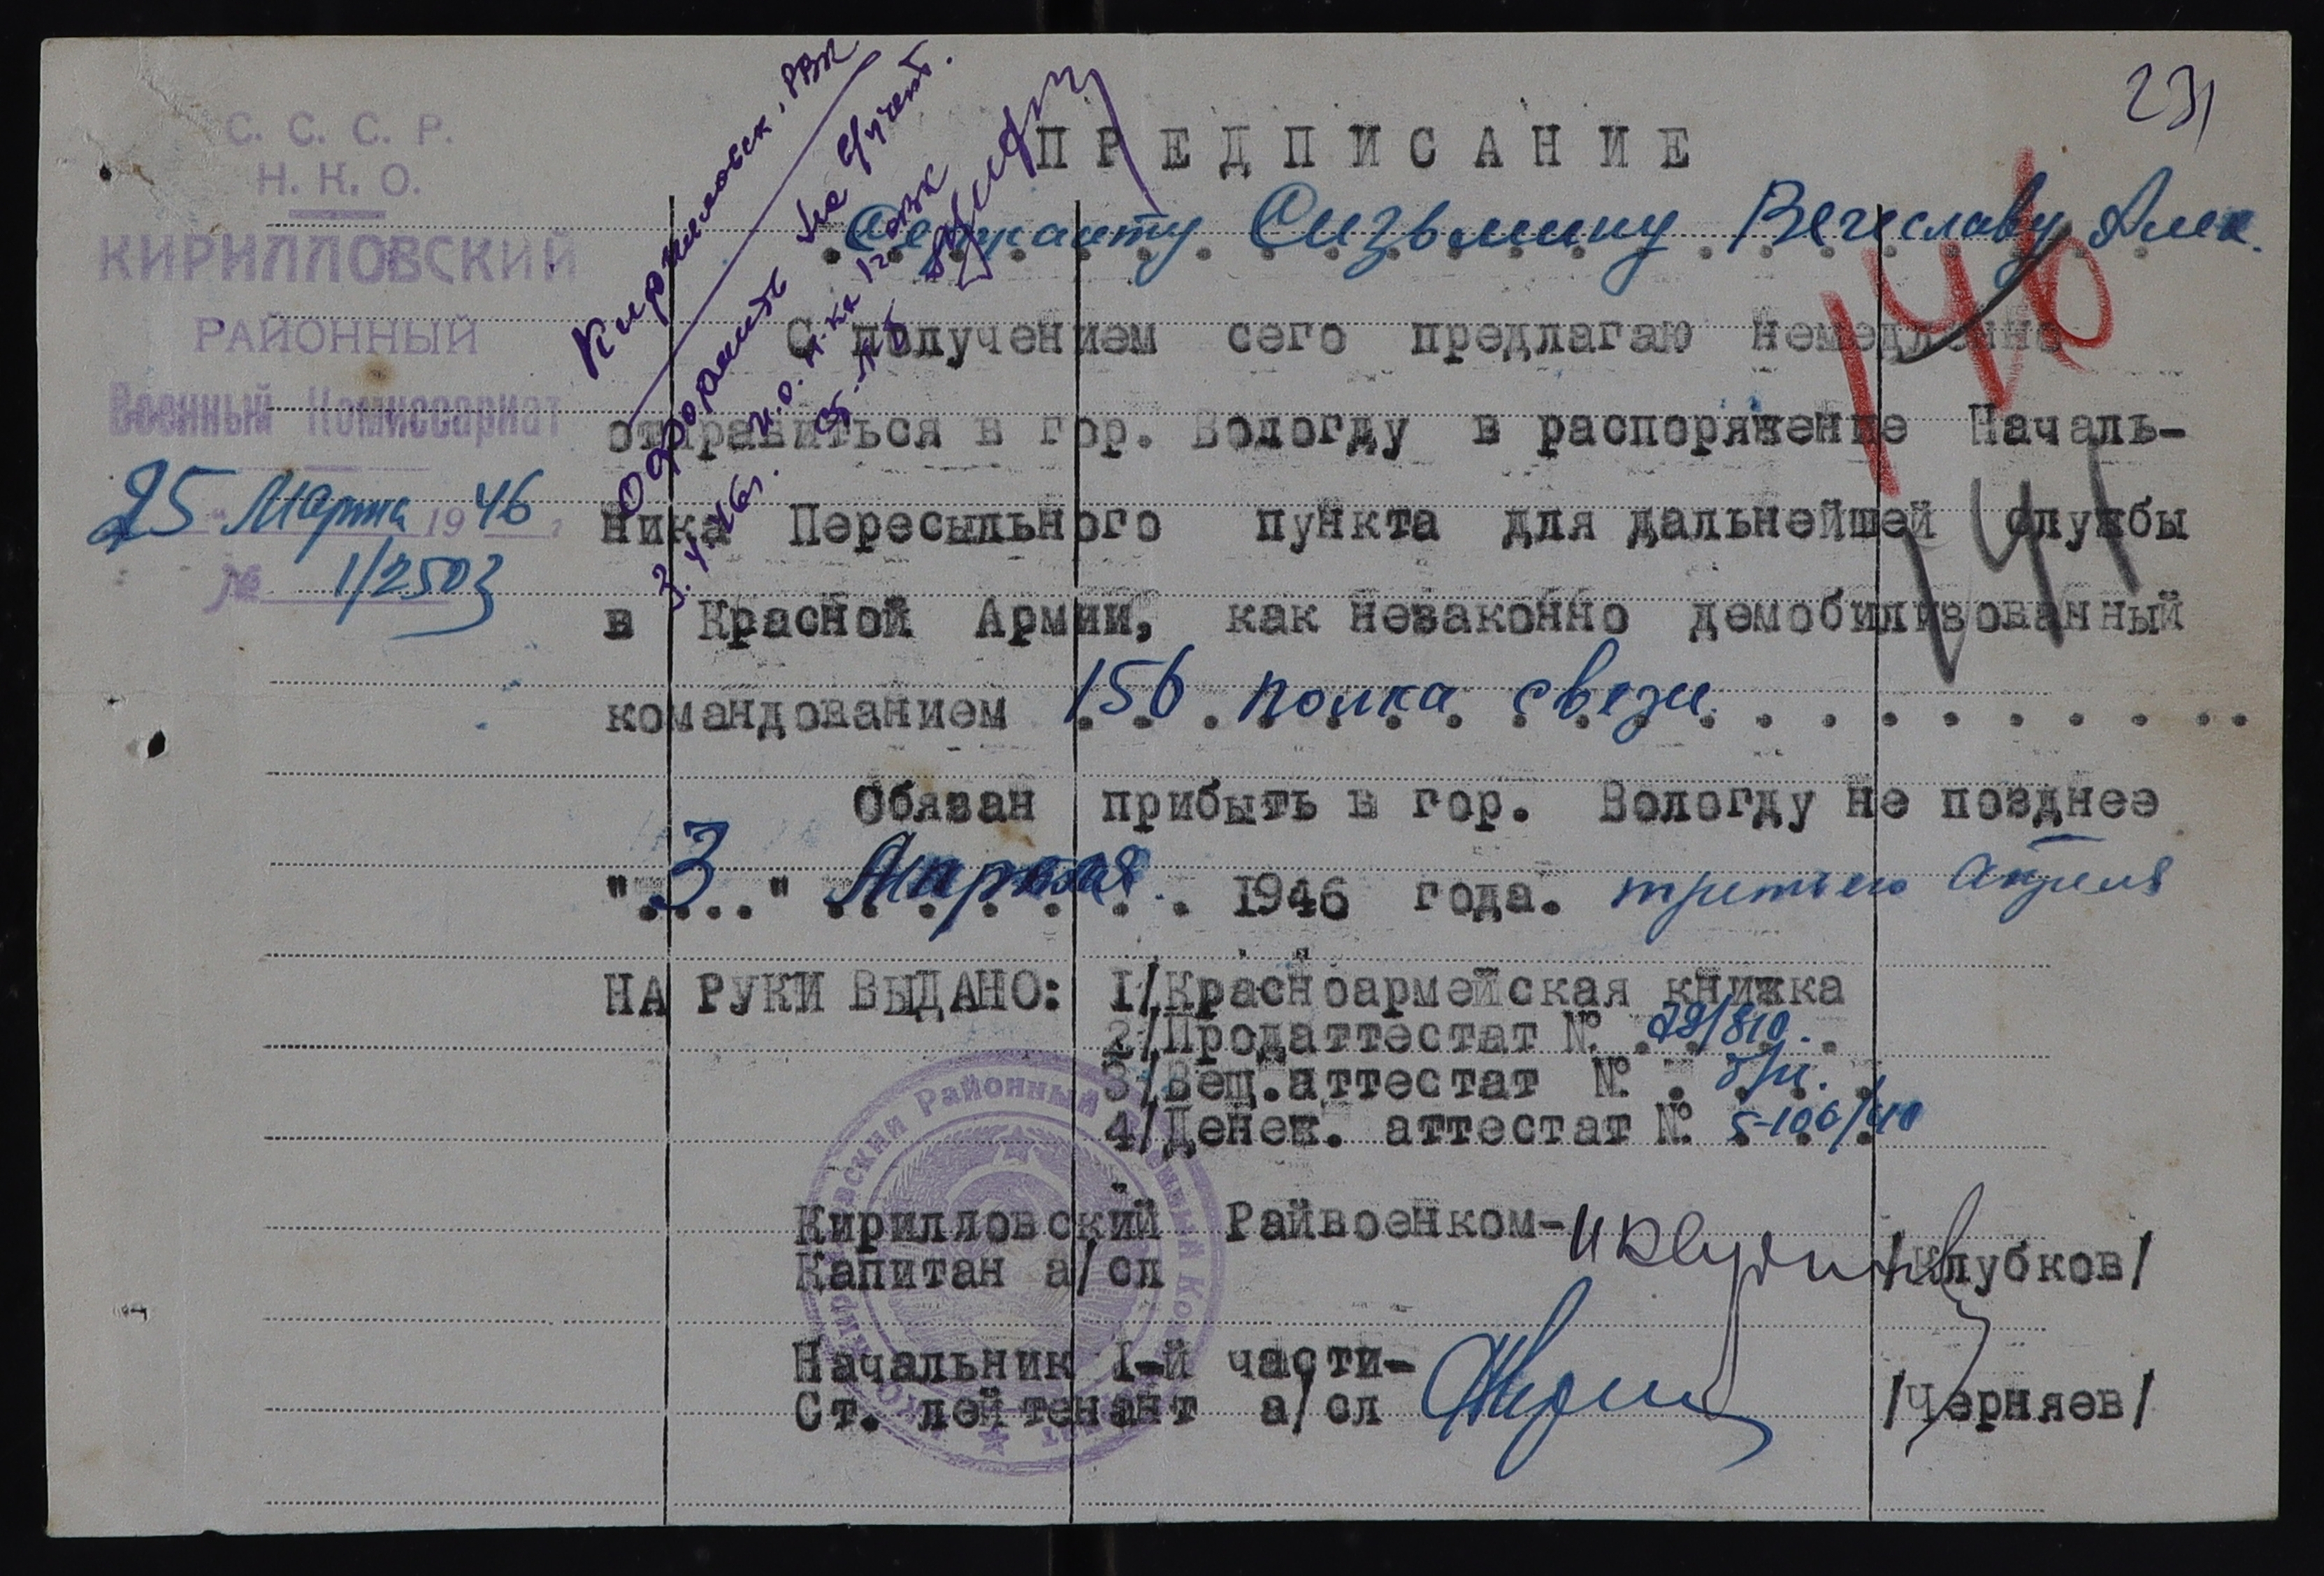 231
С. С. С. Р.
Н. К. О.
КИРИЛЛОВСКИЙ
РАЙОННЫЙ
Военный Комиссариат
25 Марта 1946 г
№ 1/2503
Кирилловск. РВК
Оформить на учет.
3.4.46г.
ПРЕДПИСАНИЕ
Сержанту Сизьмину Вячеславу Алек.
146
С получением сего предлагаю немедленно
отправиться в гор. Вологду в распоряжение Началь-
ника Пересыльного пункта для дальнейшей службы
141
в Красной Армии, как незаконно демобилизованный
командованием 156 полка связи
Обязан прибыть в гор. Вологду не позднее
"3" Апреля 1946 года. третьего апреля
НА РУКИ ВЫДАНО: 1/Красноармейская книжка
2/Продаттестат № 79/810.
3/Вещ.аттестат № б/н.
4/Денеж. аттестат № 5-106/410
Кирилловский Райвоенком-
Капитан а/сл /Клубков/
Начальник 1-й части-
Ст. лейтенант а/сл /Черняев/